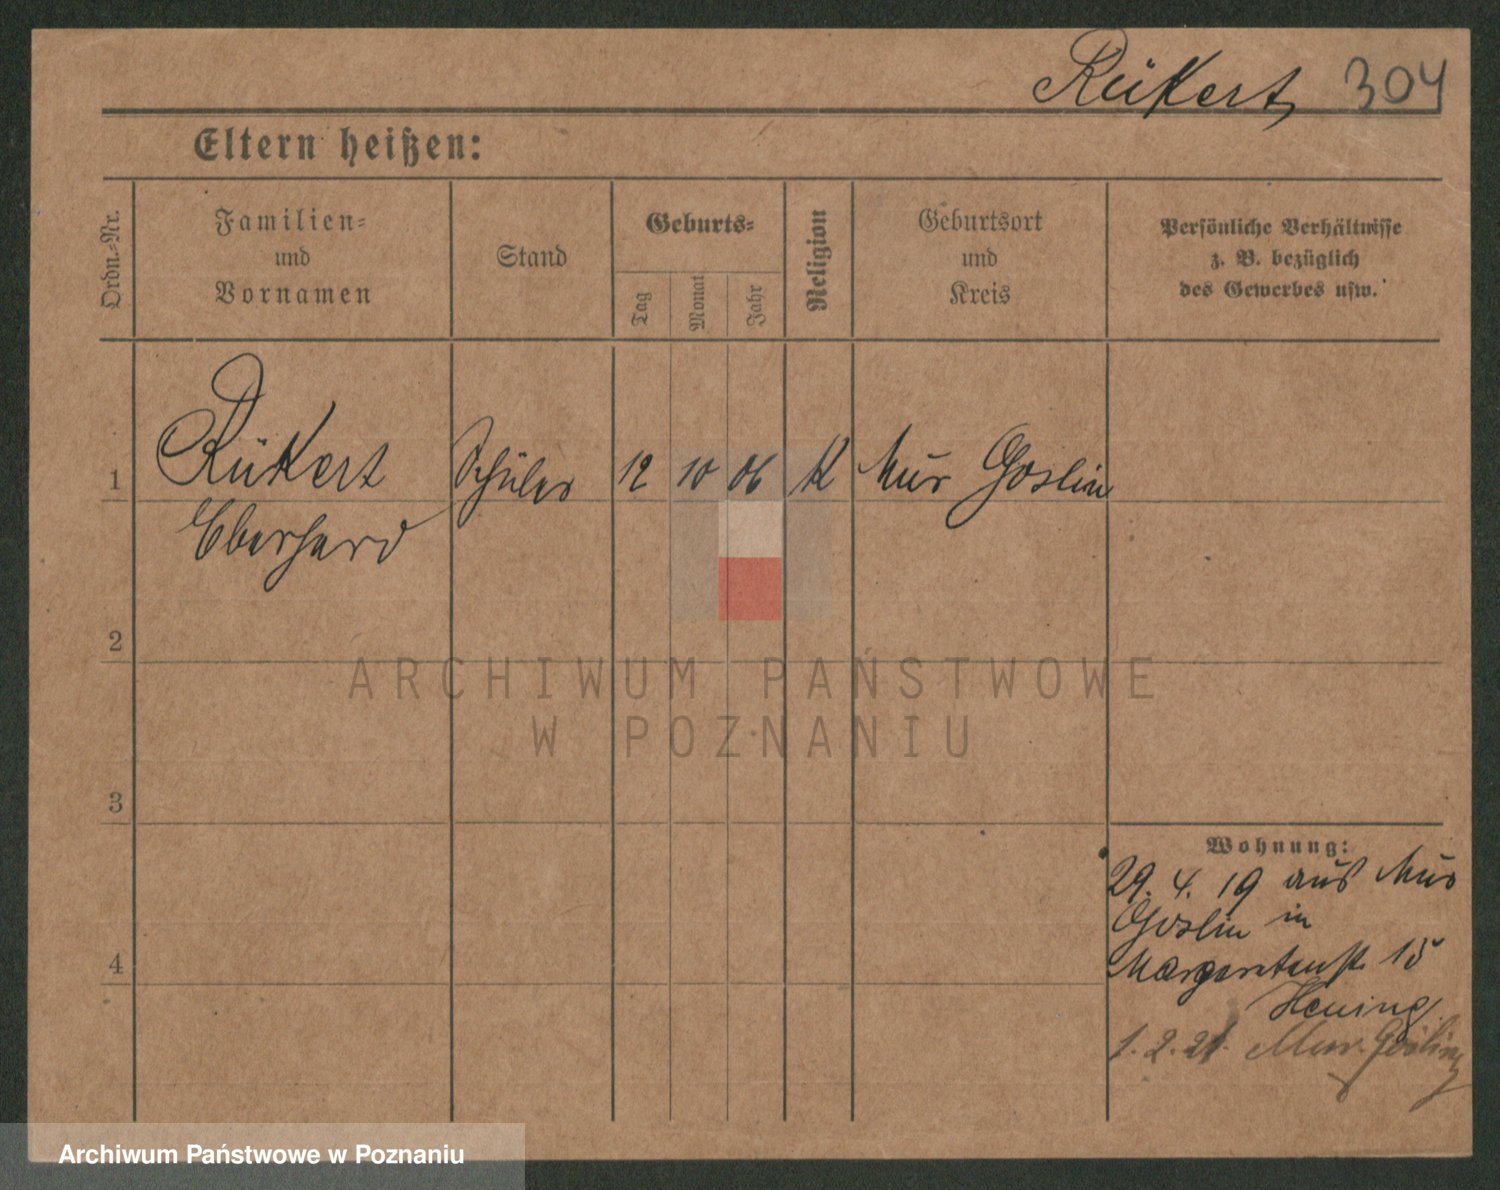 Rükert 304
Eltern heißen:
Ordn.-Nr.
Familien-
und
Vornamen
Stand
Geburts-
Tag
Monat
Jahr
Religion
Geburtsort
und
Kreis
Persönliche Verhältnisse
z. B. bezüglich
des Gewerbes usw.
1 Rükert Schüler 12 10 06 K Mur Goslin
Eberhard
2
3
4
Wohnung:
29. 4. 19 aus Mur
Goslin in
Margaretenst. 15
Hening
1. 2. 21. Mur. Goslin
ARCHIWUM PAŃSTWOWE
W POZNANIU
Archiwum Państwowe w Poznaniu